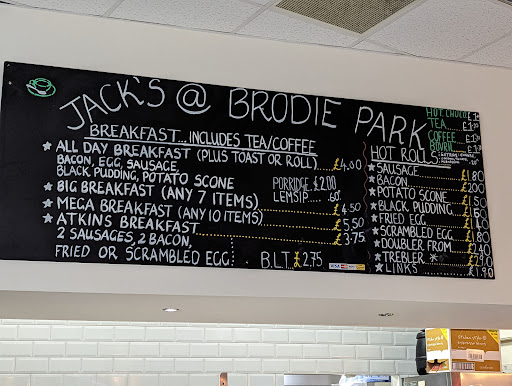 JACK'S @ BRODIE PARK
BREAKFAST.. INCLUDES TEA/COFFEE
★ ALL DAY BREAKFAST (PLUS TOAST OR ROLL)...... £4.00
BACON, EGG, SAUSAGE,
BLACK PUDDING, POTATO SCONE
PORRIDGE £2.00
★ BIG BREAKFAST (ANY 7 ITEMS)
LEMSIP... .60
£4.50
★ MEGA BREAKFAST (ANY 10 ITEMS) £5.50
★ ATKINS BREAKFAST £3.75
2 SAUSAGES, 2 BACON,
FRIED OR SCRAMBLED EGG
B.L.T £2.75
HOT CHOCO
TEA
COFFEE
BOVRIL
HOT ROLLS
★ SAUSAGE £1.80
★ BACON £2.00
★ POTATO SCONE
★ BLACK PUDDING
★ FRIED EGG
★ SCRAMBLED EGG £1.80
★ DOUBLER FROM £2.40
★ TREBLER *
★ LINKS £1.90
VISA